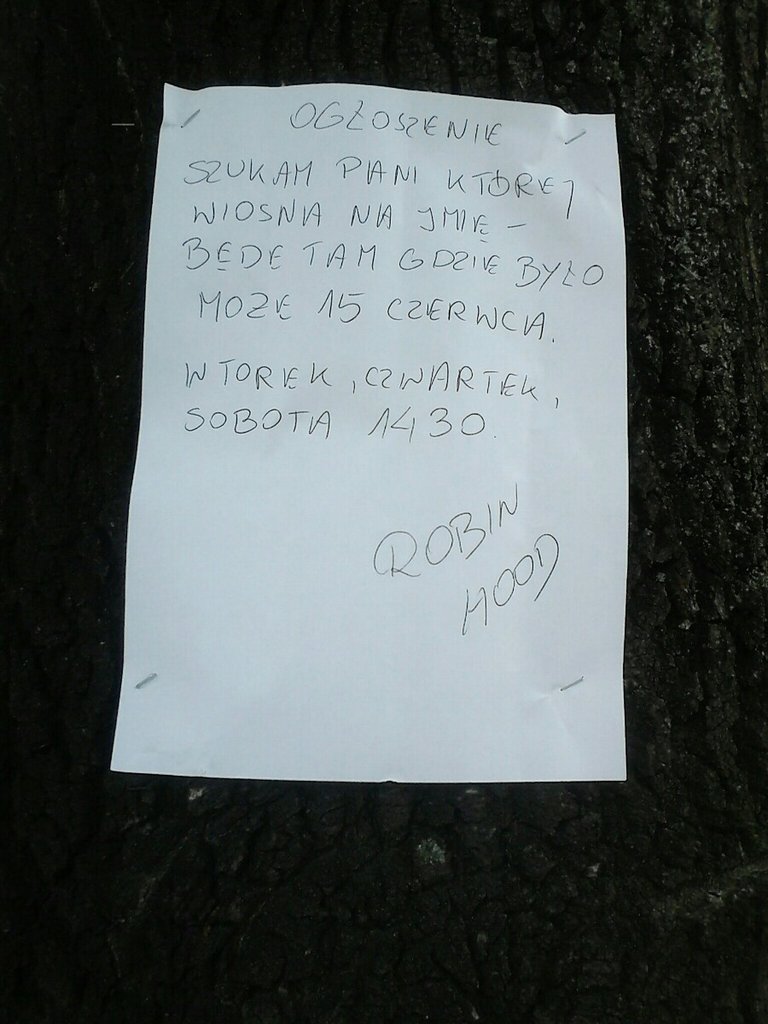 OGŁOSZENIE
SZUKAM PANI KTÓREJ
WIOSNA NA JMIĘ -
BĘDE TAM GDZIE BYŁO
MOŻE 15 CZERWCA.
WTOREK, CZWARTEK,
SOBOTA 1430.
ROBIN
HOOD